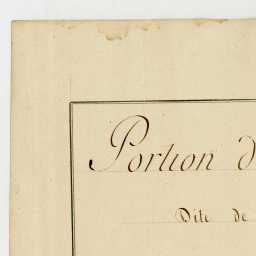 Portion d
Dite de